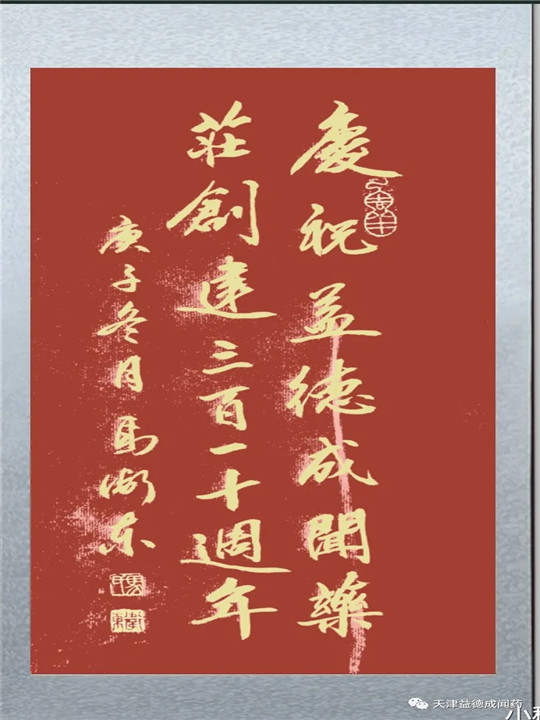 慶祝益德成聞藥
莊創建三百一十週年
庚子冬月馬
东
天津益德成闻药